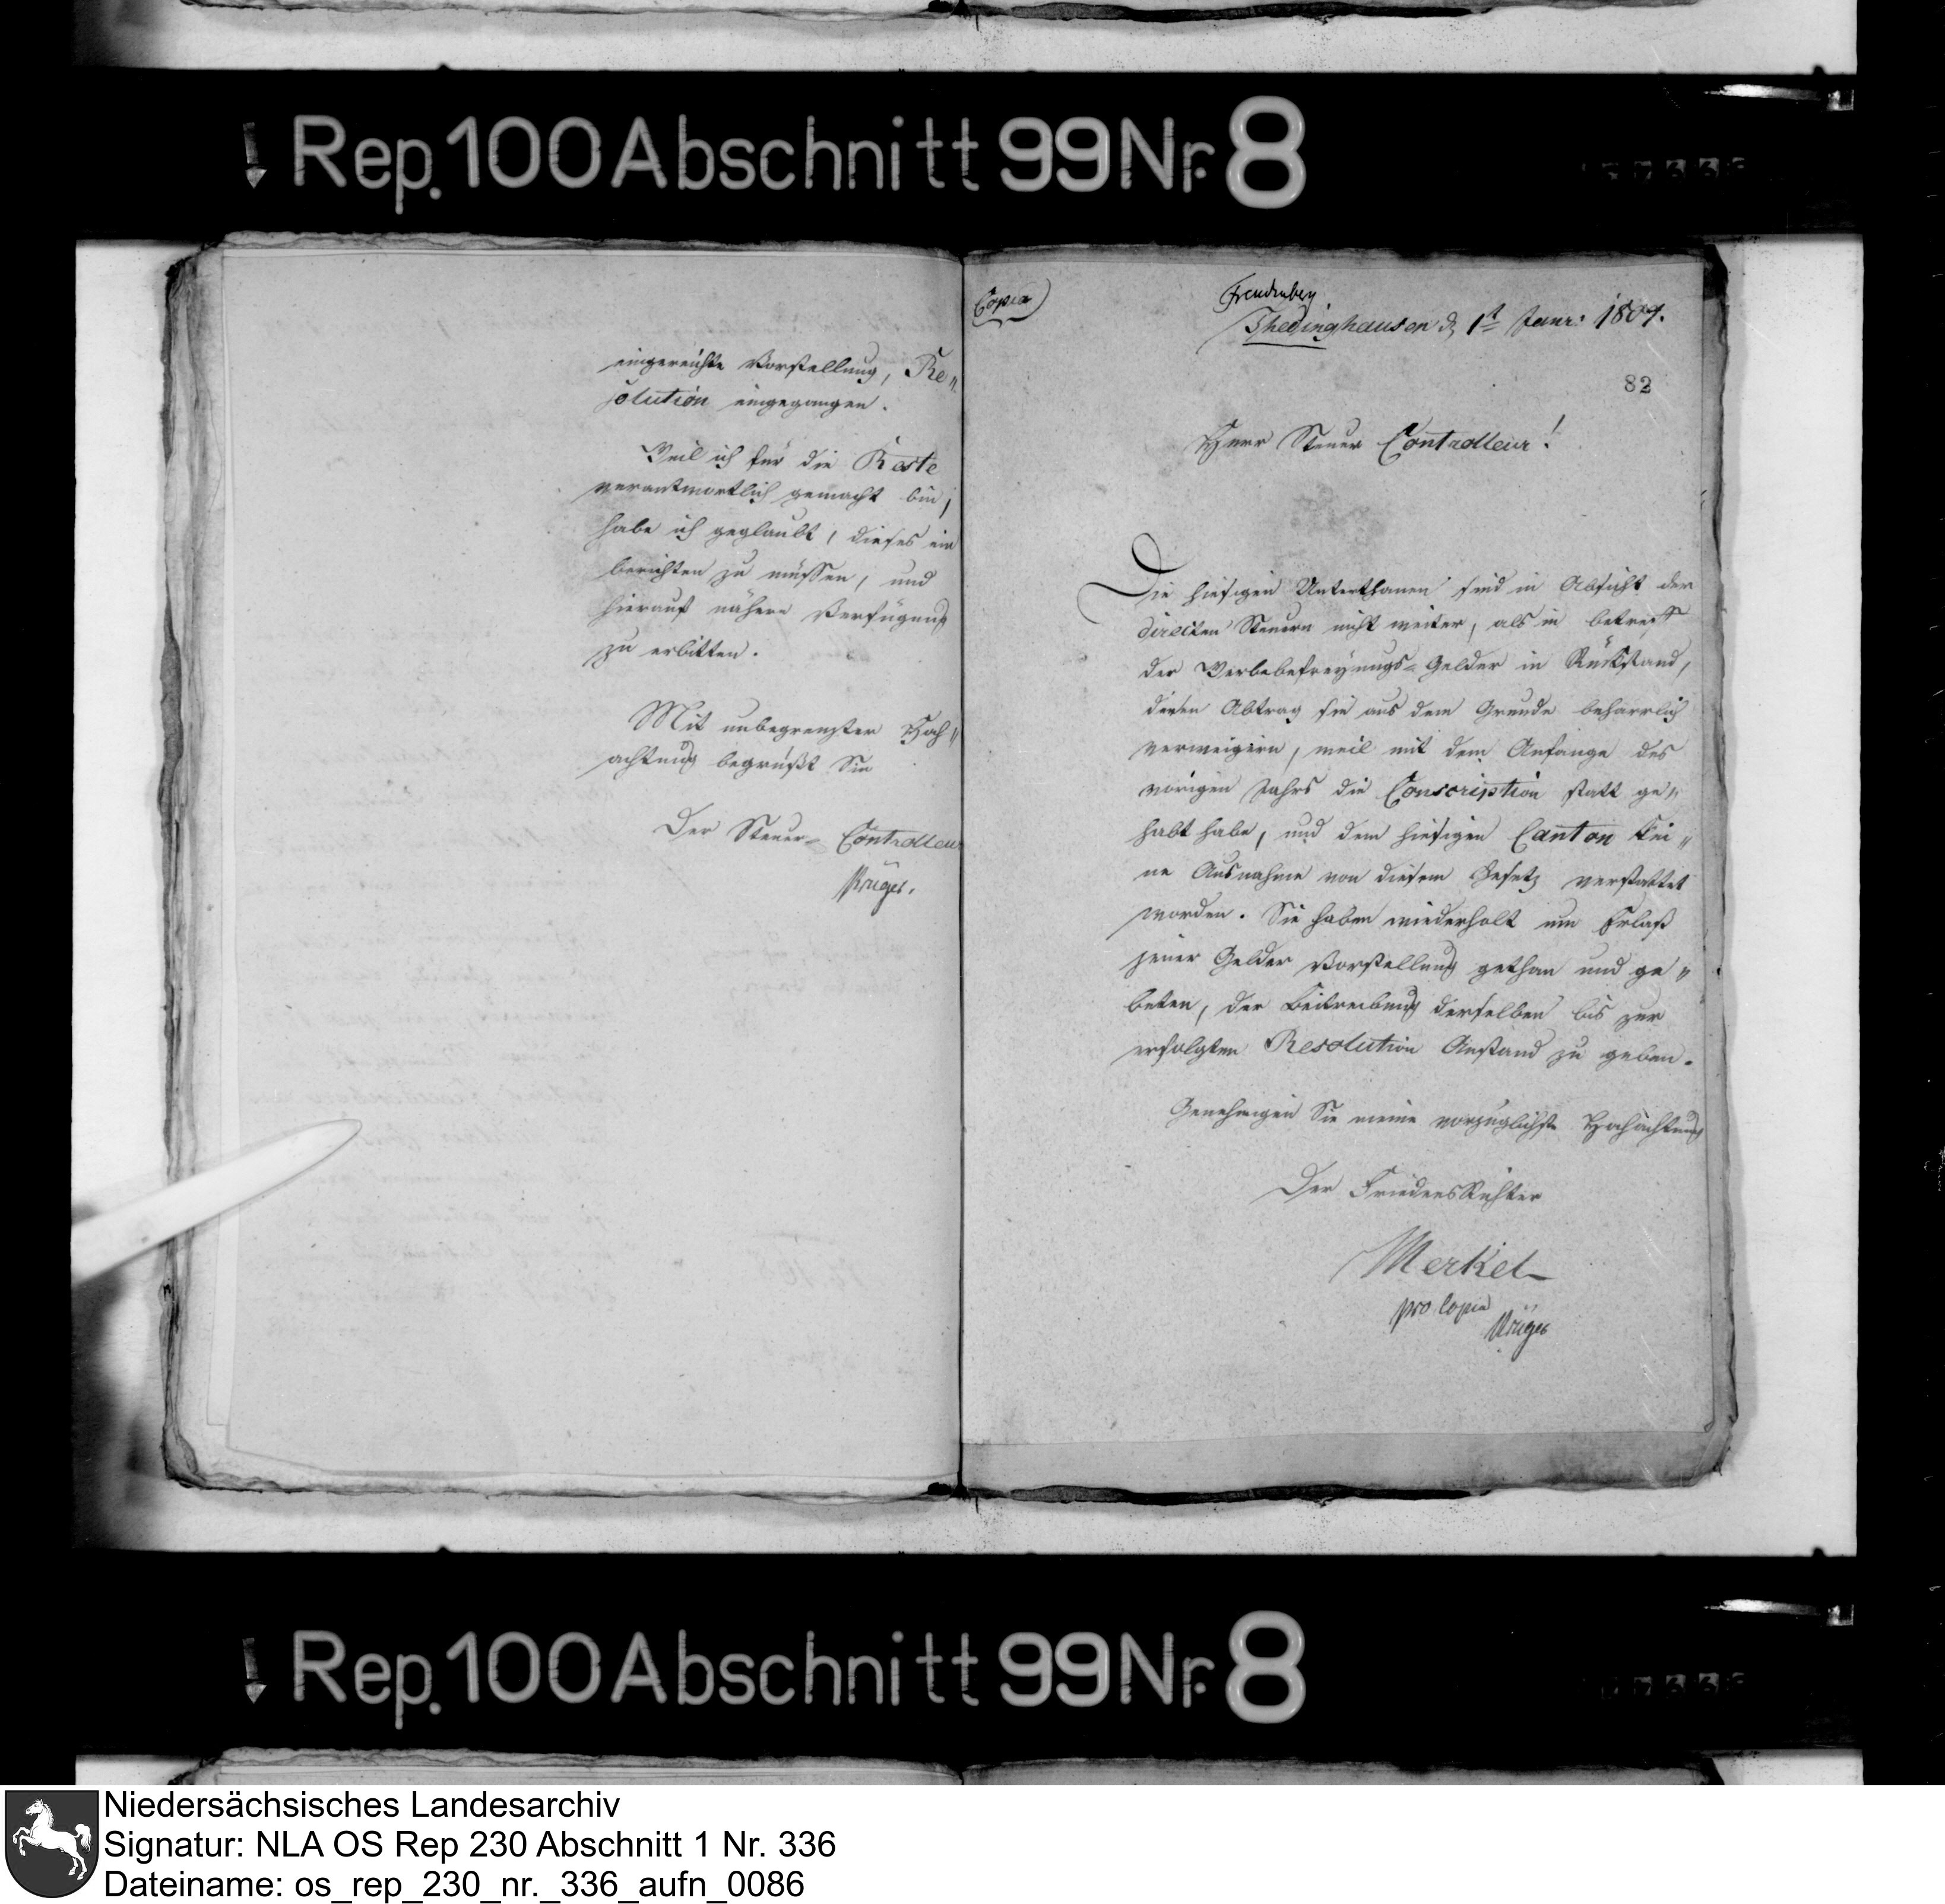 Rep. 100 Abschnitt 99 Nr. 8
eingereichte Vorstellung, Re„
solution eingegangen.
Weil ich für die Reste
verantwortlich gemacht bin,
habe ich geglaubt, dieses ein
berichten zu müssen, und
hierauf nähere Verfügung
zu erbitten.
Mit unbegrenzter Hoch„
achtung begrüßt Sie
Der Steuer-Controlleur
Krüger.
Copia)
Freudenberg
Thedinghausen d. 1t Janr: 1809.
82
Herr Steuer Controlleur!
Die hiesigen Unterthanen sind in Absicht der
directen Steuern nicht weiter, als in betreff
der Werbebefreyungs-Gelder in Rückstand,
deren Abtrag sie aus dem Grunde beharrlich
verweigern, weil mit dem Anfange des
vorigen Jahrs die Conscription statt ge„
habt habe, und dem hiesigen Canton kei„
ne Ausnahme von diesem Gesetz verstattet
worden. Sie haben wiederholt um Erlaß
jener Gelder Vorstellung gethan und ge„
beten, der Beitreibung derselben bis zur
erfolgten Resolution Anstand zu geben.
Genehmigen Sie meine vorzüglichste Hochachtung
Der FriedensRichter
Merkel
pro Copia
Krüger
Rep. 100 Abschnitt 99 Nr. 8
Niedersächsisches Landesarchiv
Signatur: NLA OS Rep 230 Abschnitt 1 Nr. 336
Dateiname: os_rep_230_nr._336_aufn_0086